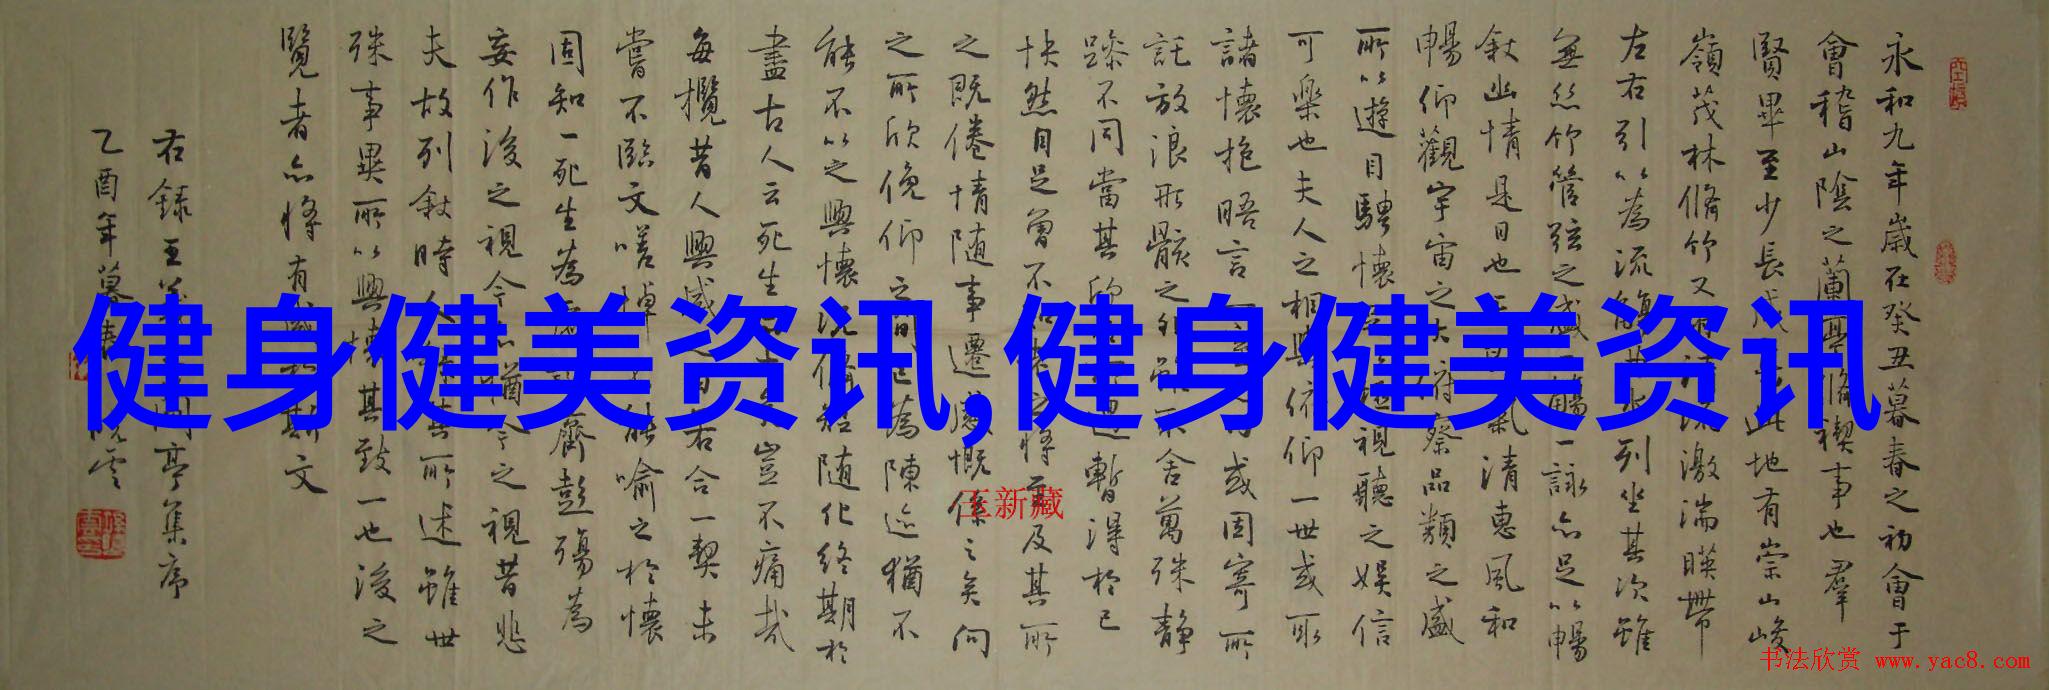 永和九年歲在癸丑暮春之初會于
會稽山陰之蘭亭脩禊事也羣
賢畢至少長咸集此地有崇山峻
嶺茂林脩竹又有清流激湍暎帶
左右引以為流觴曲水列坐其次雖
無丝竹管弦之盛一觴一詠亦足以暢
敘幽情是日也天朗氣清惠風和
暢仰觀宇宙之大府察品類之盛
所以遊目騁懷足以極視聽之娛信
可樂也夫人之相與俯仰一世或取
諸懷抱晤言一室之內或因寄所
託放浪形骸之外雖取舍萬殊静
躁不同當其欣於所遇暫得於己
快然自足曾不知老之將至及其所
之既倦情随事遷感慨係之矣向
之所欣俛仰之間已為陳迹猶不
能不以之興懷況脩短随化終期於
盡古人云死生亦大矣豈不痛哉
每攬昔人興感之由若合一契未
嘗不臨文嗟悼不能喻之於懷
固知一死生為虛誕齊彭殤為
妄作後之視今亦猶今之視昔悲
夫故列敘時人錄其所述雖世
殊事異所以興懷其致一也後之
覽者亦將有感於斯文
右錄王羲之蘭亭集序
乙酉年暮春
健身健美资讯,健身健美资讯
王新藏
书法欣赏 www.yac8.com